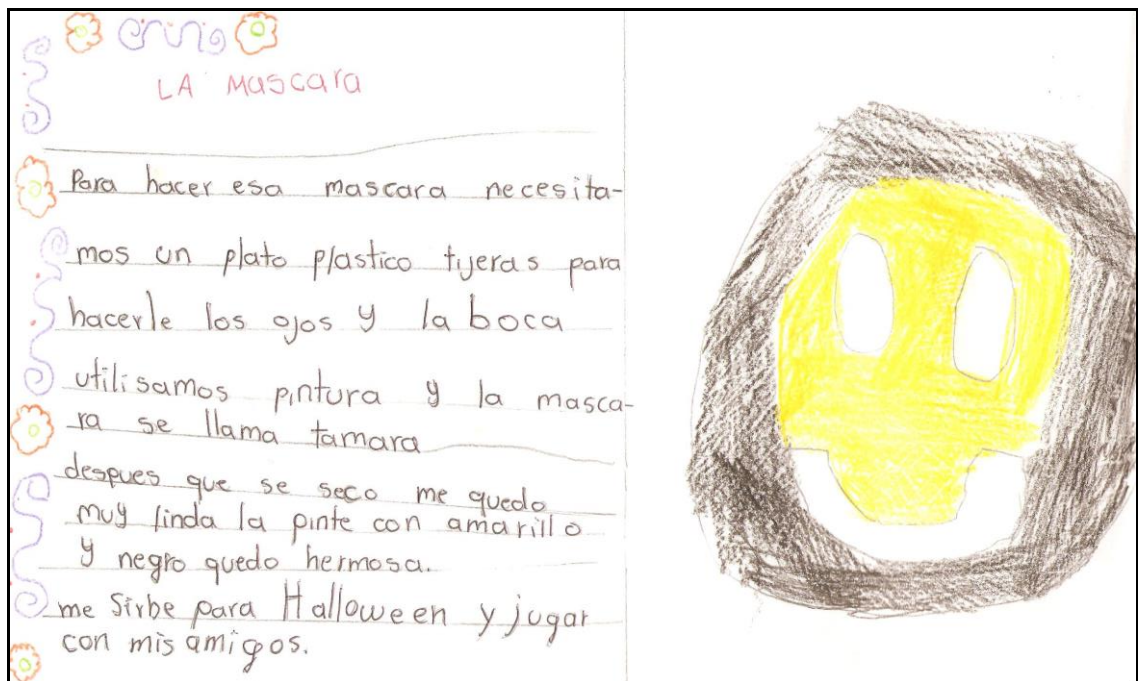 LA Mascara
Para hacer esa mascara necesita-
mos un plato plastico tijeras para
hacerle los ojos y la boca
utilisamos pintura y la masca-
ra se llama tamara
despues que se seco me quedo
muy linda la pinte con amarillo
y negro quedo hermosa.
me sirbe para Halloween y jugar
con mis amigos.